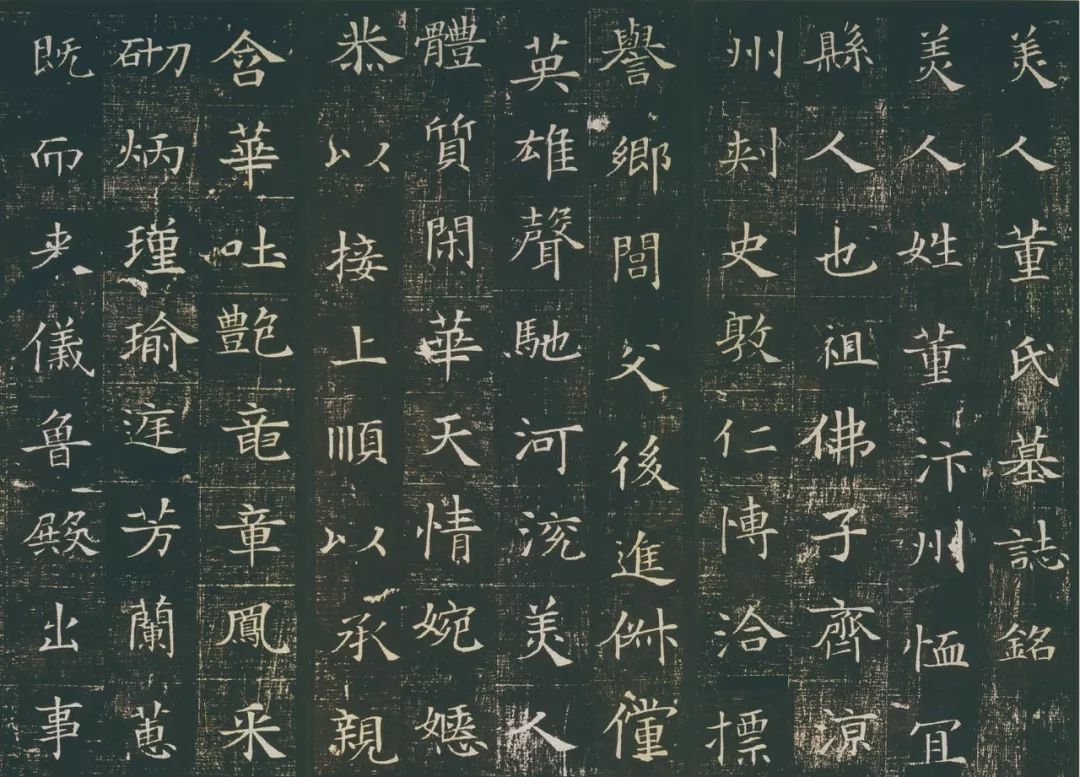 美人董氏墓誌銘
美人姓董汴州恤冝
縣人也祖佛子齊涼
州刾史敦仁愽洽摽
譽鄉閭父後進俶儻
英雄聲馳河渷美人
體質閑華天情婉嫕
恭以接上順以承親
含華吐艷竜章鳳采
砌炳瑾瑜庭芳蘭蕙
既而来儀魯殿出事